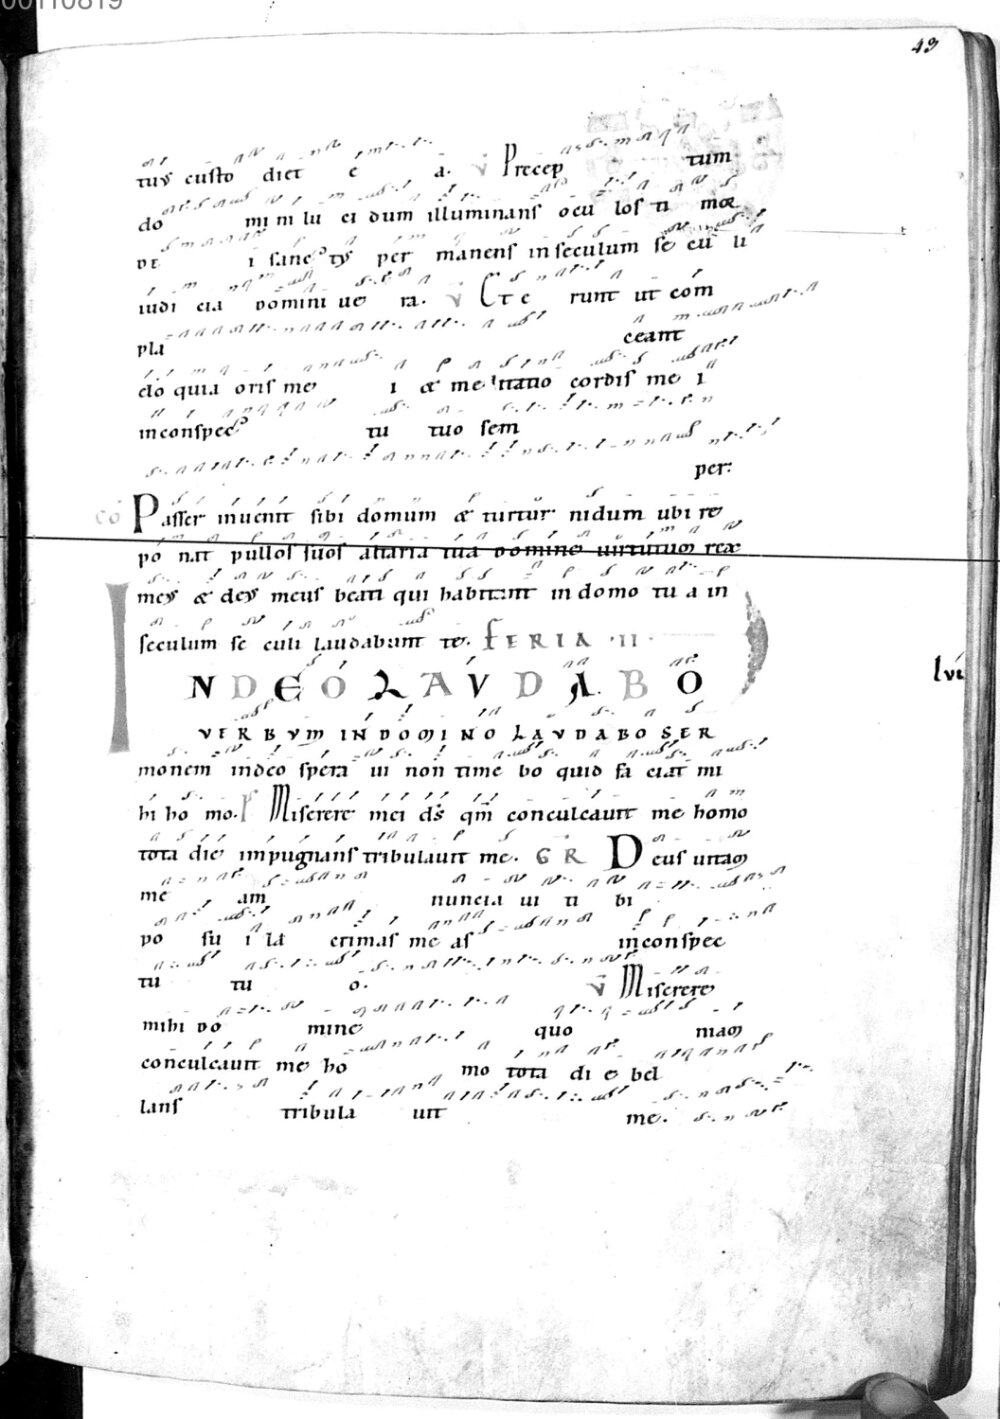 00110819
49
tus custo diet e a. V Precep tum
do mi ni lu ci dum illuminans ocu los ti mor
DE i sanctus per manens in seculum se cu li
iudi cia domini ue ra. V Et e runt ut com
pla ceant
elo quia oris me i & me ditatio cordis me i
inconspec tu tuo sem
per:
CO Passer inuenit sibi domum & turtur nidum ubi re
po nat pullos suos altaria tua domine uirtutum rex
meus & deus meus beati qui habitant in domo tu a in
seculum se culi laudabunt te. FERIA ·II·
IN DEO LAUDABO
VERBVM IN DOMINO LAVDABO SER
monem in deo spera ui non time bo quid fa ciat mi
hi ho mo. Ps Miserere mei ds qm conculcauit me homo
tota die impugnans tribulauit me. GR Deus uitam
me am nuncia ui ti bi
po su i la crimas me as inconspec
tu tu o. V Miserere
mihi do mine quo niam
conculcauit me ho mo tota di e bel
lans tribula uit me.
lvi